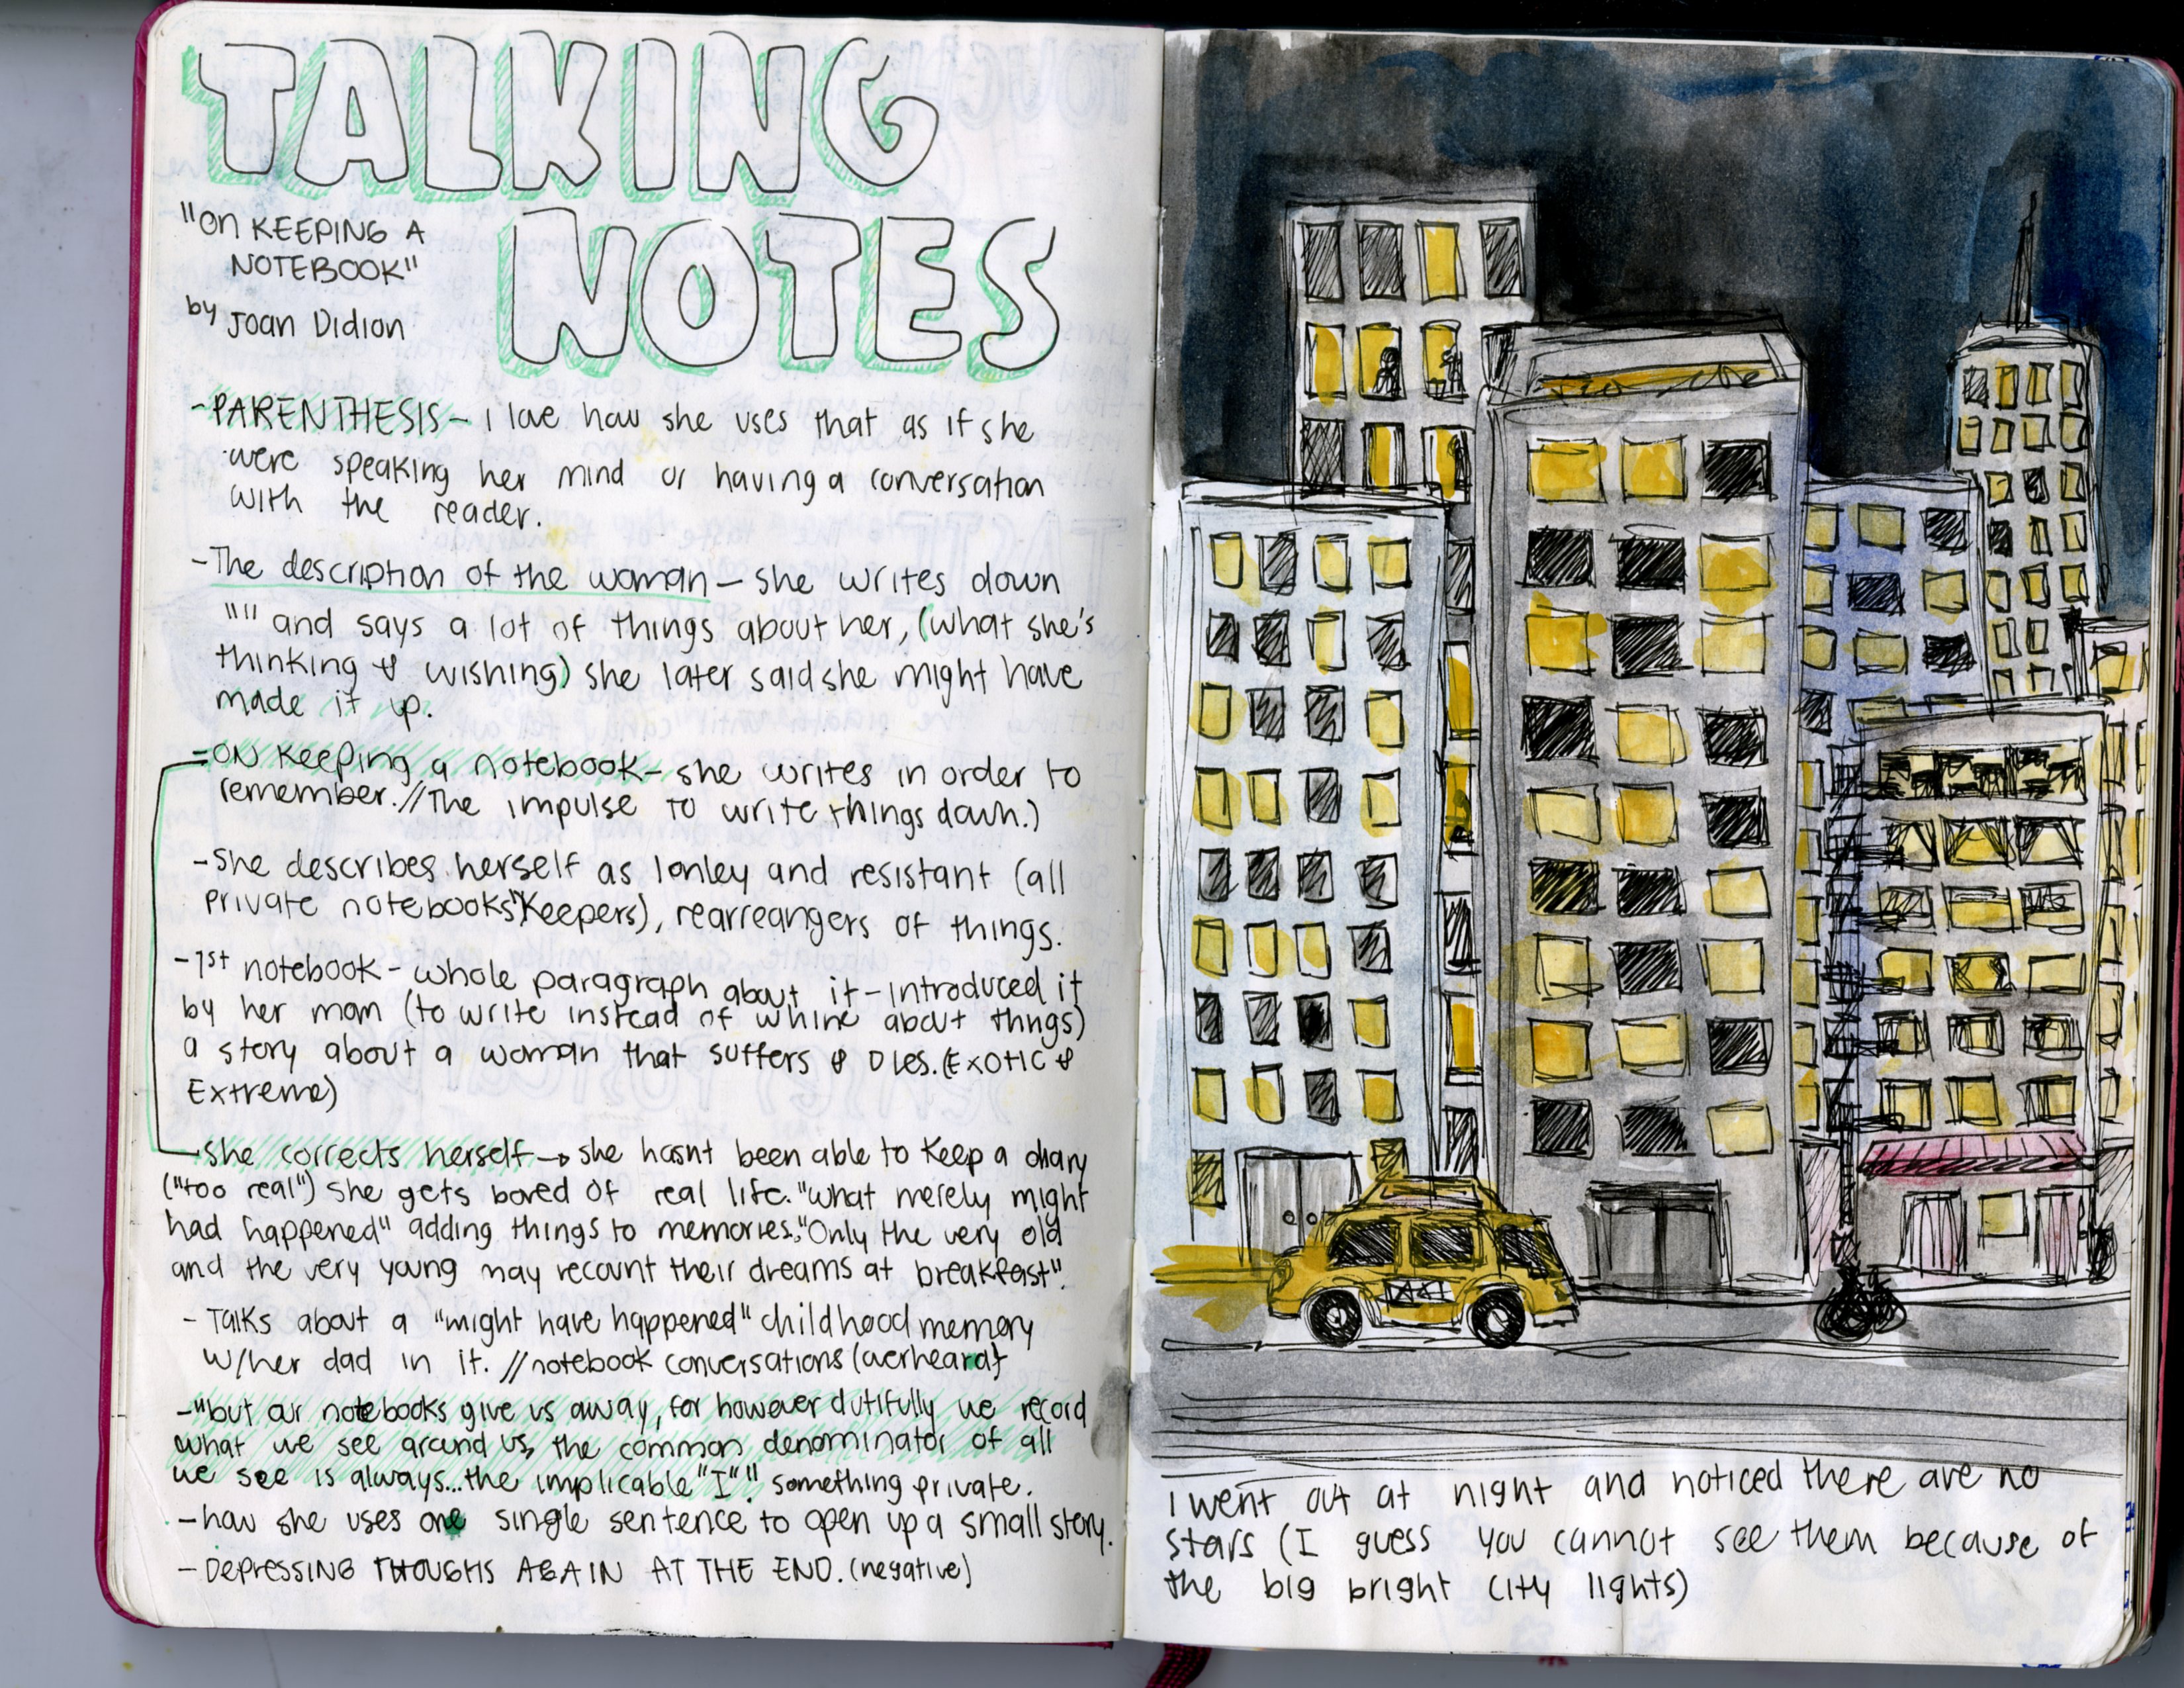 TALKING
NOTES
"On KEEPING A
NOTEBOOK"
by Joan Didion
-PARENTHESIS- I love how she uses that as if she
were speaking her mind or having a conversation
with the reader.
-The description of the woman- she writes down
"" and says a lot of things about her, (what she's
thinking & wishing) she later said she might have
made it up.
=ON Keeping a notebook- she writes in order to
remember.//The impulse to write things down.)
-She describes herself as lonley and resistant (all
private notebooks Keepers), rearreangers of things.
-1st notebook- whole paragraph about it-introduced it
by her mom (to write instead of whine about thngs)
a story about a woman that suffers & Dies.(Exotic &
Extreme)
She corrects herself→ she hasnt been able to keep a diary
("too real") she gets bored of real life."what merely might
had happened" adding things to memories."Only the very old
and the very young may recount their dreams at breakfast".
- Talks about a "might have happened" childhood memory
w/her dad in it. //notebook conversations (overheard)
-"but our notebooks give us away, for however dutifully we record
what we see around us, the common denominator of all
we see is always...the implicable "I"." something private.
-how she uses one single sentence to open up a small story.
-DEPRESSING THOUGHS AGAIN AT THE END.(negative)
TAXI
I went out at night and noticed there are no
stars (I guess you cannot see them because of
the big bright city lights)